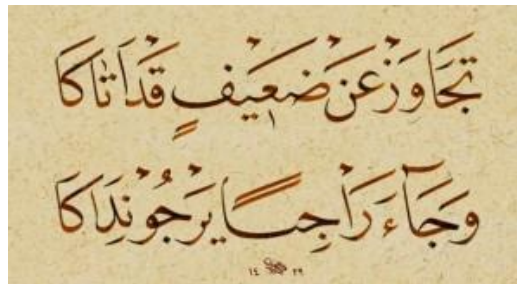 تَجَاوَزْ عَنْ ضَعِيفٍ قَدْ اَتَاكَا
وَجَآءَ رَاْجِيًا يَرْجُوْ نِدَاكَا
١٤ ٢٩